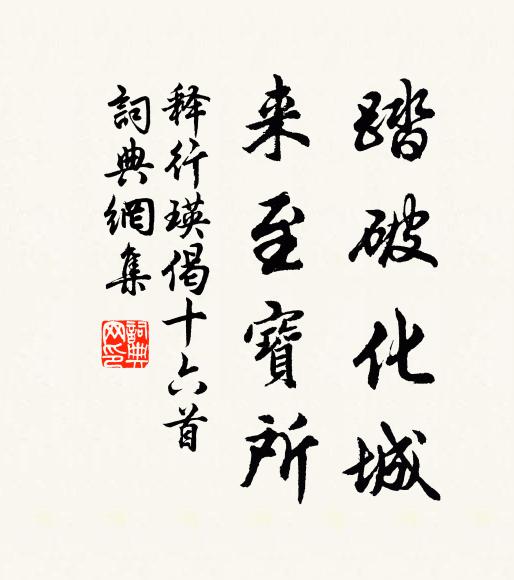 踏破化城
来至寶所
释行瑛偈十六首
詞典網集
詞典网印